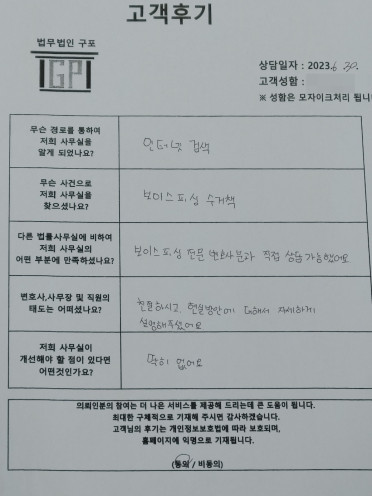 고객후기
법무법인 구포
IGPI
상담일자 : 2023. 6. 30.
고객성함 :
※ 성함은 모자이크처리 됩니
무슨 경로를 통하여
저희 사무실을
알게 되었나요?
인터넷 검색
무슨 사건으로
저희 사무실을
찾으셨나요?
보이스피싱 수거책
다른 법률사무실에 비하여
저희 사무실의
어떤 부분에 만족하셨나요?
보이스피싱 전문 변호사분과 직접 상담 가능했어요
변호사,사무장 및 직원의
태도는 어떠셨나요?
친절하시고 현실방안에 대해서 자세하게
설명해주셨어요
저희 사무실이
개선해야 할 점이 있다면
어떤것인가요?
딱히 없어요
의뢰인분의 참여는 더 나은 서비스를 제공해 드리는데 큰 도움이 됩니다.
최대한 구체적으로 기재해 주시면 감사하겠습니다.
고객님의 후기는 개인정보보호법에 따라 보호되며,
홈페이지에 익명으로 기재됩니다.
(동의 / 비동의)